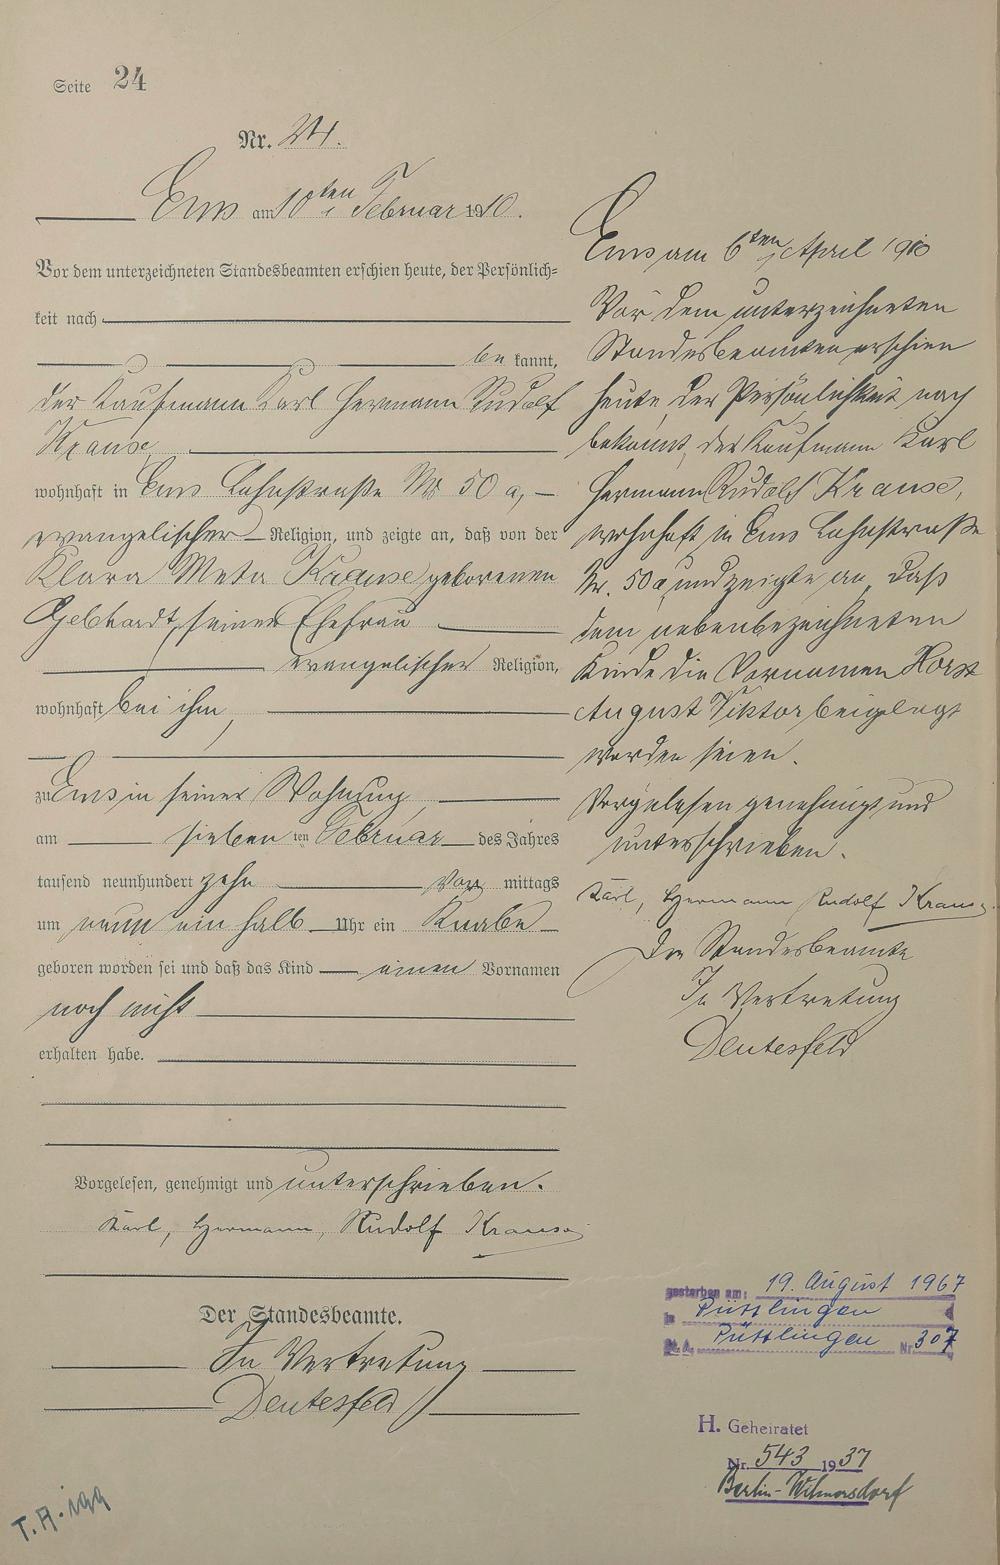 Seite 24
Nr. 24.
Ems am 10ten Februar 1910.
Vor dem unterzeichneten Standesbeamten erschien heute, der Persönlich=
keit nach
be kannt,
der Kaufmann Karl Hermann Rudolf
Krause,
wohnhaft in Ems Lahnstraße Nr 50 a,
evangelischer Religion, und zeigte an, daß von der
Klara Meta Krause geborenen
Gebhardt, seiner Ehefrau
evangelischer Religion,
wohnhaft bei ihm,
zu Ems in seiner Wohnung
am sieben ten Februar des Jahres
tausend neunhundert zehn Vor mittags
um neun ein halb Uhr ein Knabe
geboren worden sei und daß das Kind einen Vornamen
noch nicht
erhalten habe.
Vorgelesen, genehmigt und unterschrieben.
Karl, Hermann, Rudolf Krause
Der Standesbeamte.
In Vertretung
Deutesfeld
Ems am 6ten April 1910
Vor dem unterzeichneten
Standesbeamten erschien
heute der Persönlichkeit nach
bekannt, der Kaufmann Karl
Hermann Rudolf Krause,
wohnhaft in Ems Lahnstraße
Nr. 50a, und zeigte an, daß
dem nebenbezeichneten
Kinde die Vornamen Horst
August Viktor beigelegt
worden seien.
Vorgelesen genehmigt und
unterschrieben.
Karl, Hermann Rudolf Krause
Der Standesbeamte
In Vertretung
Deutesfeld
gestorben am: 19. August 1967
in Püttlingen
St. A. Püttlingen Nr. 307
H. Geheiratet
Nr. 543 1937
Berlin-Wilmersdorf